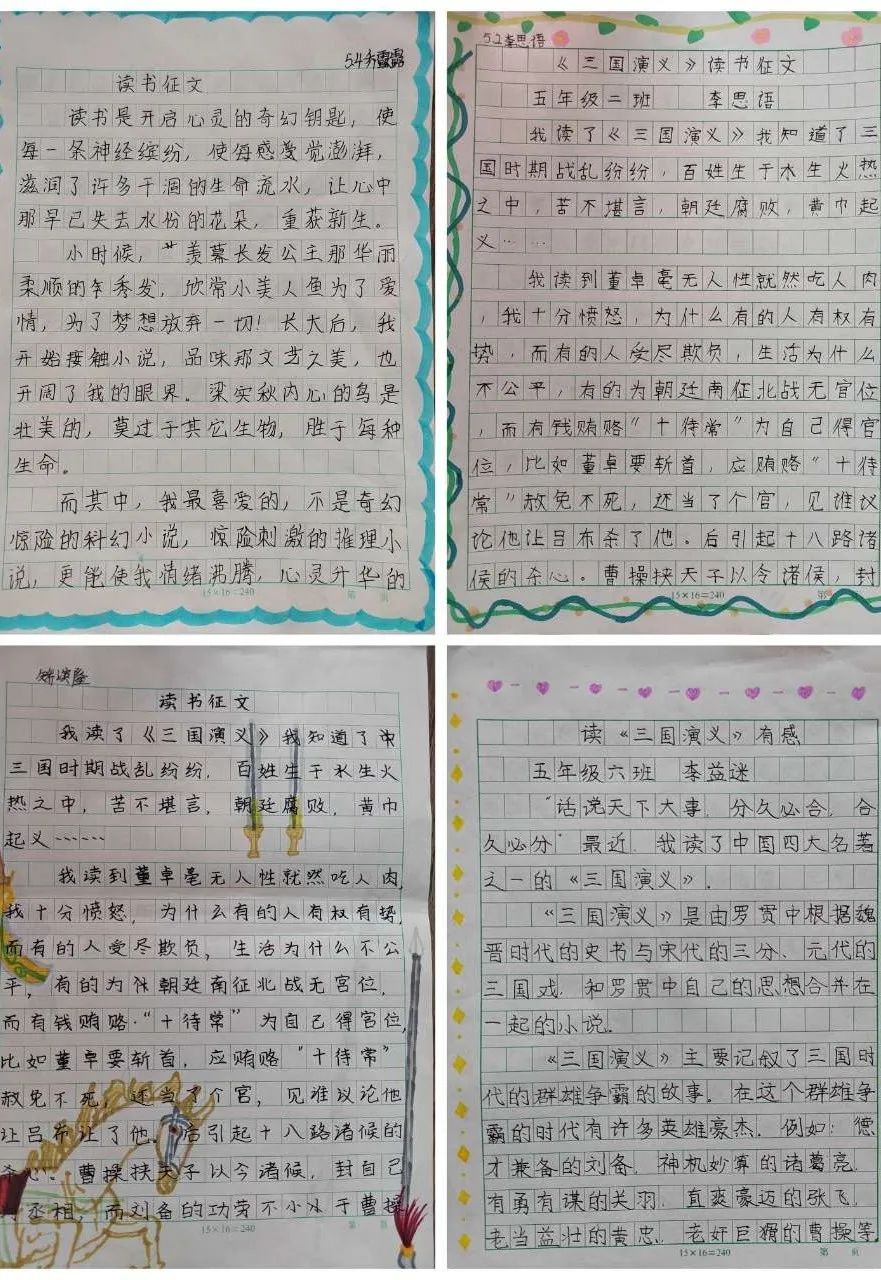 5.4
读书征文
读书是开启心灵的奇幻钥匙，使
每一条神经缤纷，使每感受觉澎湃，
滋润了许多干涸的生命流水，让心中
那早已失去水份的花朵，重获新生。
小时候，艹羡慕长发公主那华丽
柔顺的秀发，欣常小美人鱼为了爱
情，为了梦想放弃一切！长大后，我
开始接触小说，品味那文艺之美，也
开阔了我的眼界。梁实秋内心的鸟是
壮美的，莫过于其它生物，胜于每种
生命。
而其中，我最喜爱的，不是奇幻
惊险的科幻小说，惊险刺激的推理小
说，更能使我情绪沸腾，心灵升华的
15×16=240 第 页
5.2李思语
《三国演义》读书征文
五年级二班 李思语
我读了《三国演义》我知道了三
国时期战乱纷纷，百姓生于水生火热
之中，苦不堪言，朝廷腐败，黄巾起
义……
我读到董卓毫无人性就然吃人肉
，我十分愤怒，为什么有的人有权有
势，而有的人受尽欺负，生活为什么
不公平，有的为朝廷南征北战无官位
，而有钱贿赂“十待常”为自己得官
位，比如董卓要斩首，应贿赂“十待
常”赦免不死，还当了个官，见谁议
论他让吕布杀了他。后引起十八路诸
侯的杀心。曹操挟天子以令诸侯，封
15×16=240 第
读书征文
我读了《三国演义》我知道了中
三国时期战乱纷纷，百姓生于水生火
热之中，苦不堪言，朝廷腐败，黄巾
起义……
我读到董卓毫无人性就然吃人肉，
我十分愤怒，为什么有的人有权有势，
而有的人受尽欺负，生活为什么不公
平，有的为朝廷南征北战无官位，
而有钱贿赂·“十待常”为自己得官位，
比如董卓要斩首，应贿赂“十待常”
赦免不死，还当了个官，见谁议论他
让吕布让了他，后引起十八路诸候的
杀心。曹操挟天子以今诸候，封自己
丞相，而刘备的功劳不小于曹操
15×16=240 第 页
读《三国演义》有感
五年级六班 李益迷
“话说天下大事，分久必合，合
久必分”最近，我读了中国四大名著
之一的《三国演义》.
“三国演义》是由罗贯中根据魏
晋时代的史书与宋代的三分、元代的
三国戏，和罗贯中自己的思想合并在
一起的小说。
《三国演义》主要记叙了三国时
代的群雄争霸的故事，在这个群雄争
霸的时代有许多英雄豪杰，例如：德
才兼备的刘备，神机妙算的诸葛亮，
有勇有谋的关羽，直爽豪迈的张飞，
老当益壮的黄忠，老奸巨猾的曹操等
15×16=240 第 页